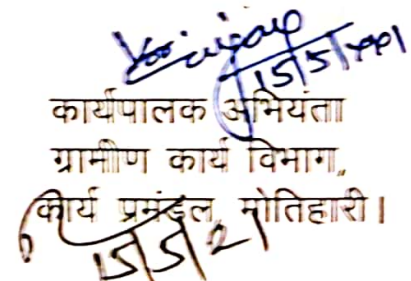 15/5/2021
कार्यपालक अभियंता
ग्रामीण कार्य विभाग,
कार्य प्रमंडल, मोतिहारी।
15/5/21